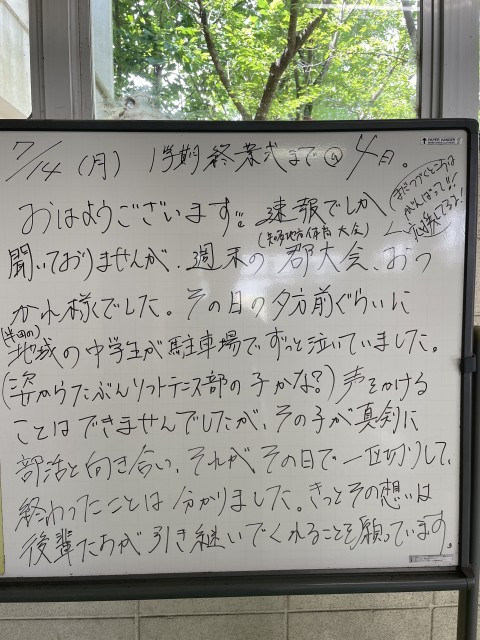 7/14(月) 1学期終業式まで④ 4日。
まだつづくところは
がんばって!!
応援してるよ!
おはようございます。速報でしか
(知多地方体育大会)
聞いておりませんが、週末の郡大会、おつ
かれ様でした。その日の夕方前ぐらいに
(半田の)
地域の中学生が駐車場でずっと泣いていました。
(姿からたぶんソフトテニス部の子かな?)声をかける
ことはできませんでしたが、その子が真剣に
部活と向き合い、それがその日で一区切りして、
終わったことは分かりました。きっとその想いは
後輩たちが引き継いでくれることを願っています。